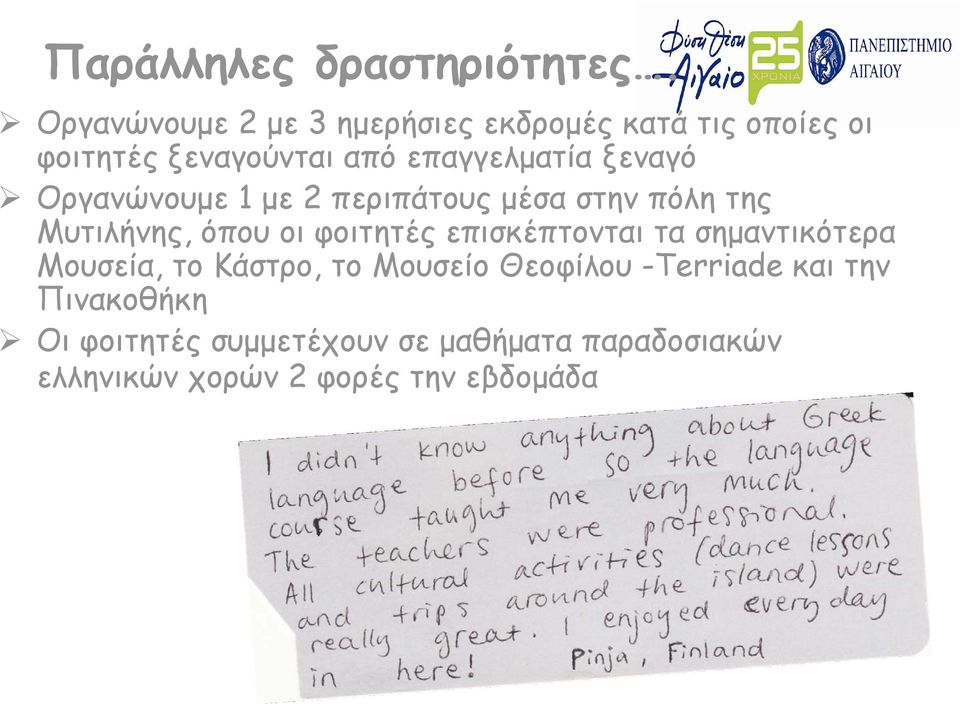 Παράλληλες δραστηριότητες….
Φύση Θέση
Αιγαίο
25
ΧΡΟΝΙΑ
ΠΑΝΕΠΙΣΤΗΜΙΟ
ΑΙΓΑΙΟΥ
➢ Οργανώνουμε 2 με 3 ημερήσιες εκδρομές κατά τις οποίες οι
φοιτητές ξεναγούνται από επαγγελματία ξεναγό
➢ Οργανώνουμε 1 με 2 περιπάτους μέσα στην πόλη της
Μυτιλήνης, όπου οι φοιτητές επισκέπτονται τα σημαντικότερα
Μουσεία, το Κάστρο, το Μουσείο Θεοφίλου -Terriade και την
Πινακοθήκη
➢ Οι φοιτητές συμμετέχουν σε μαθήματα παραδοσιακών
ελληνικών χορών 2 φορές την εβδομάδα
I didn't know anything about Greek
language before so the language
course taught me very much.
The teachers were professional.
All cultural activities (dance lessons
and trips around the island) were
really great. I enjoyed every day
in here! Pinja, Finland